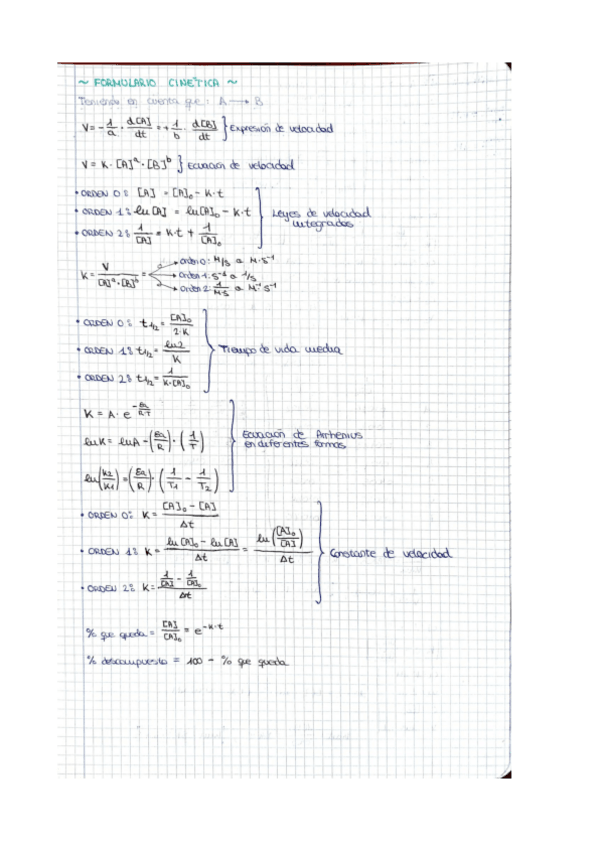 ~ FORMULARIO CINÉTICA ~
Teniendo en cuenta que: A → B
V = - 1/a · d[A]/dt = + 1/b · d[B]/dt } Expresión de velocidad
V = K · [A]ᵃ · [B]ᵇ } Ecuación de velocidad
• ORDEN 0: [A] = [A]₀ - K·t
• ORDEN 1: ln[A] = ln[A]₀ - K·t
• ORDEN 2: 1/[A] = K·t + 1/[A]₀
} Leyes de velocidad integradas
K = V/([A]ᵃ·[B]ᵇ) =
→ Orden 0: M/s o M·s⁻¹
→ Orden 1: s⁻¹ o 1/s
→ Orden 2: 1/(M·s) o M⁻¹·s⁻¹
• ORDEN 0: t₁/₂ = [A]₀/(2·K)
• ORDEN 1: t₁/₂ = ln2/K
• ORDEN 2: t₁/₂ = 1/(K·[A]₀)
} Tiempo de vida media
K = A · e^(-Ea/(R·T))
lnK = lnA - (Ea/R) · (1/T)
ln(K2/K1) = (Ea/R) · (1/T1 - 1/T2)
} Ecuación de Arrhenius
en diferentes formas
• ORDEN 0: K = ([A]₀ - [A])/Δt
• ORDEN 1: K = (ln[A]₀ - ln[A])/Δt = ln([A]₀/[A])/Δt
• ORDEN 2: K = (1/[A] - 1/[A]₀)/Δt
} Constante de velocidad
% que queda = [A]/[A]₀ = e^(-K·t)
% descompuesto = 100 - % que queda